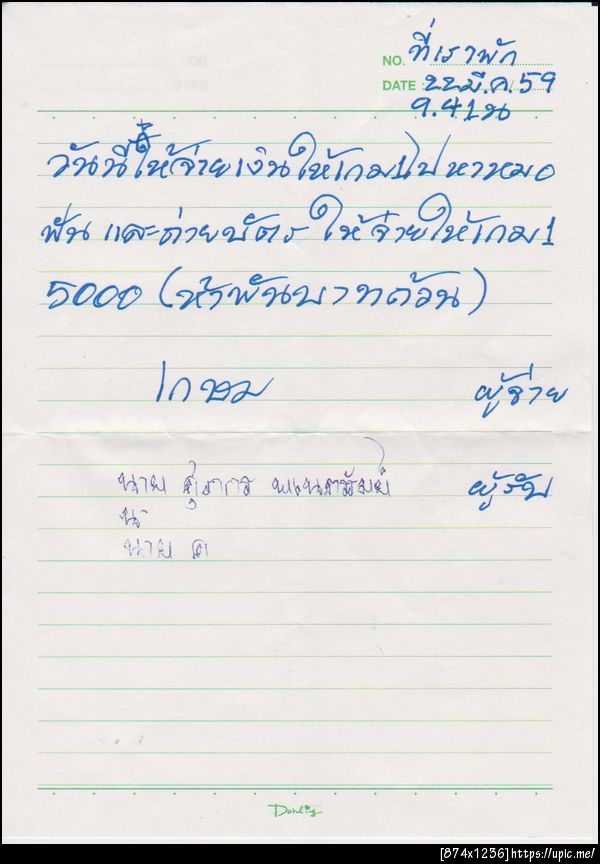 NO. ที่เราพัก
DATE 22 มี.ค. 59
9.41 น
วันนี้ ให้จ่ายเงินให้เกม1ไปหาหมอ
ฟัน และถ่ายบัตร ให้จ่ายให้เกม1
5000 (ห้าพันบาทถ้วน)
เกษม ผู้จ่าย
นาย ผู้รับ
น
นาย ค
Darling
[874x1236]https://upic.me/